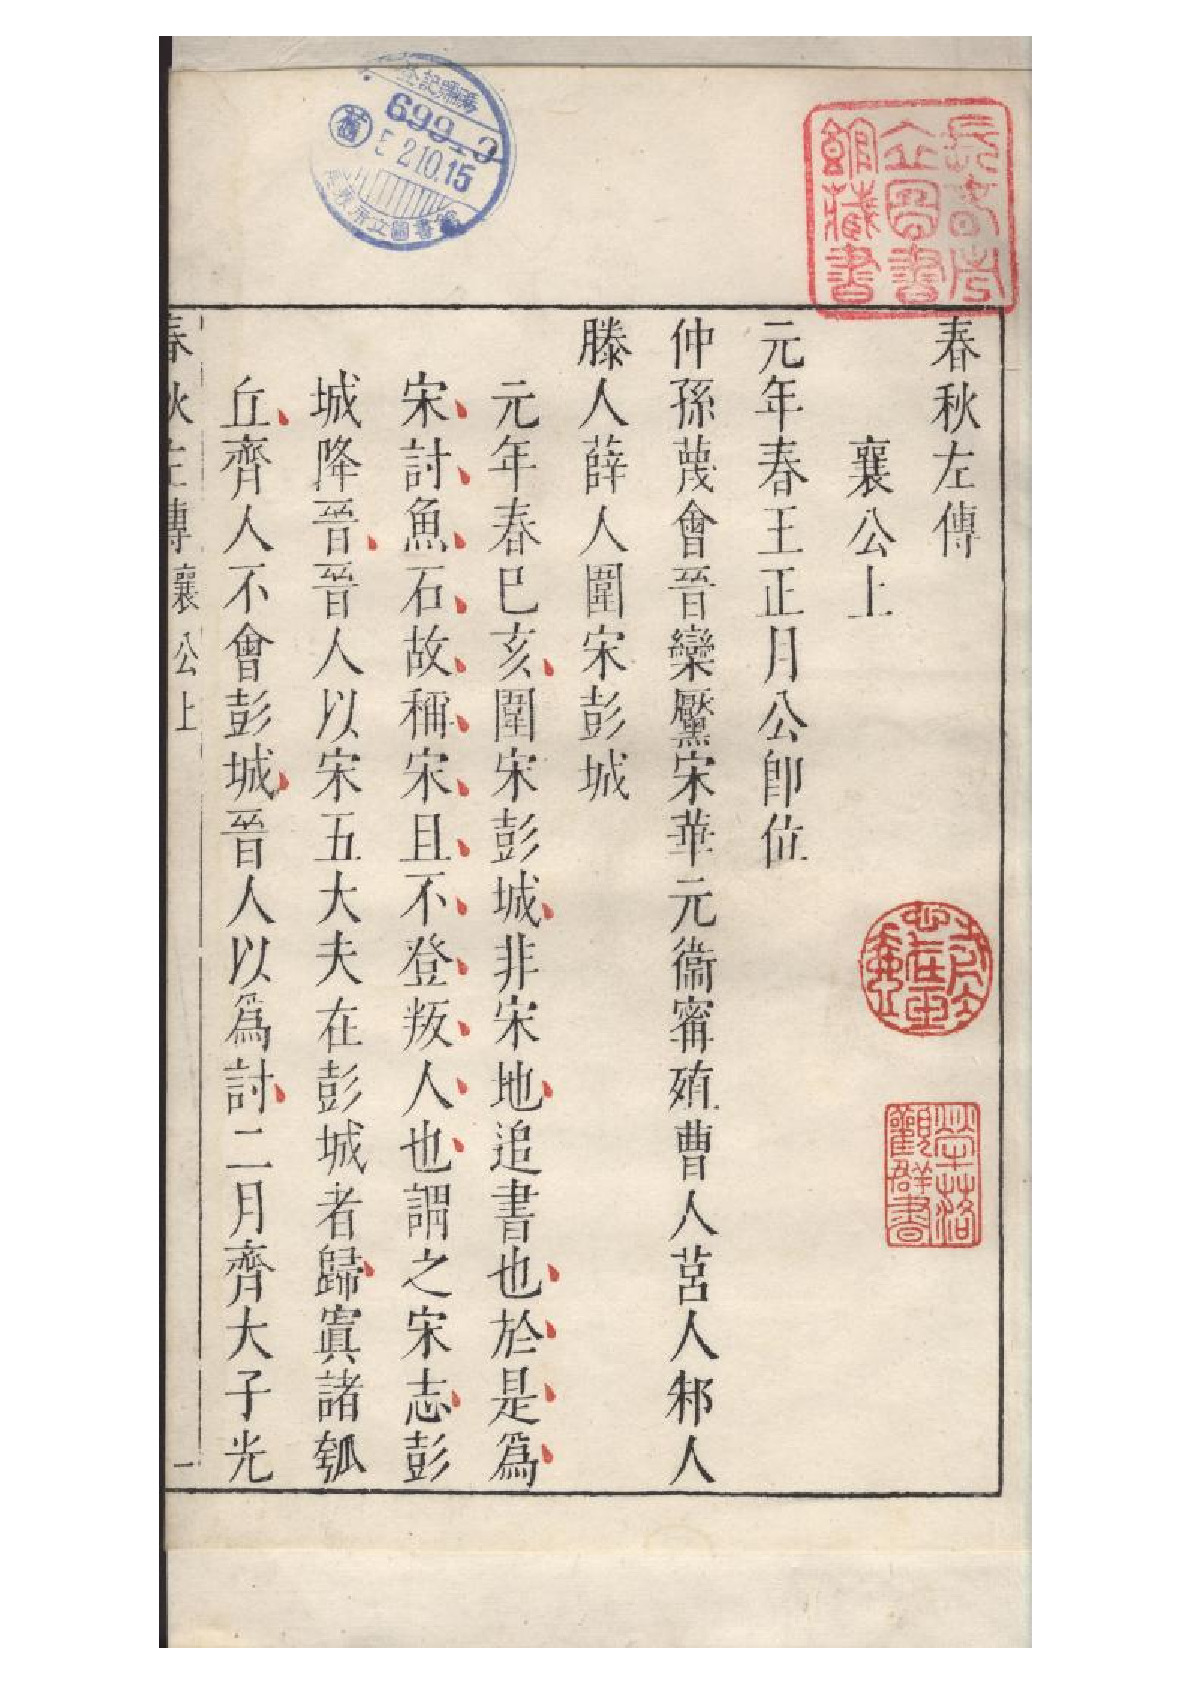 春秋左傳
襄公上
元年春王正月公卽位
仲孫蔑會晉欒黶宋華元衞甯殖曹人莒人邾人
滕人薛人圍宋彭城
元年春巳亥圍宋彭城非宋地追書也於是爲
宋討魚石故稱宋且不登叛人也謂之宋志彭
城降晉晉人以宋五大夫在彭城者歸寘諸瓠
丘齊人不會彭城晉人以爲討二月齊大子光
春秋左傳 襄公上 一
長春市立圖書館藏書
觀群書
699
52.10.15
立圖書館